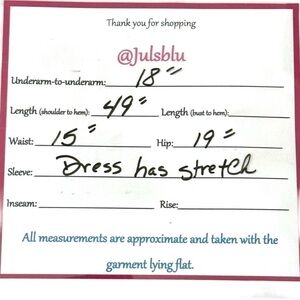 Thank you for shopping
@Julsblu
Underarm-to-underarm: 18"
Length (shoulder to hem): 49" Length (bust to hem):
Waist: 15" Hip: 19"
Sleeve: Dress has stretch
Inseam: Rise:
All measurements are approximate and taken with the
garment lying flat.